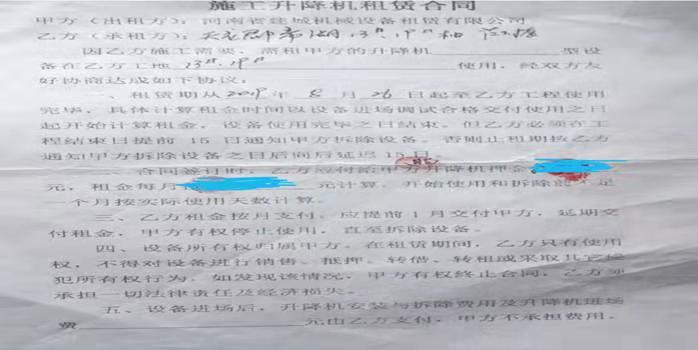 施工升降机租赁合同
甲方（出租方）：河南省建城机械设备租赁有限公司
乙方（承租方）：
因乙方施工需要，需租甲方的升降机 型设
备在乙方工地 13# 19# 使用，经双方友
好协商达成如下协议：
一、租赁期从2019年8月26日起至乙方工程使用
完毕，具体计算租金时间以设备进场调试合格交付使用之日
起开始计算租金，设备使用完毕之日结束。但乙方必须在工
程结束日提前15日通知甲方拆除设备，否则止租期按乙方
通知甲方拆除设备之日后向后延迟15日
二、合同签订时，乙方应付给甲方升降机押金
元，租金每月 元计算，开始使用和拆除前不足
一个月按实际使用天数计算。
三、乙方租金按月支付，应提前1月交付甲方，延期交
付租金，甲方有权停止使用，直至拆除设备。
四、设备所有权归属甲方，在租赁期间，乙方只有使用
权，不得对设备进行销售、抵押、转借、转租或采取其它侵
犯所有权行为，如发现该情况，甲方有权终止合同，乙方须
承担一切法律责任及经济损失。
五、设备进场后，升降机安装与拆除费用及升降机进场
费 元由乙方支付，甲方不承担费用。